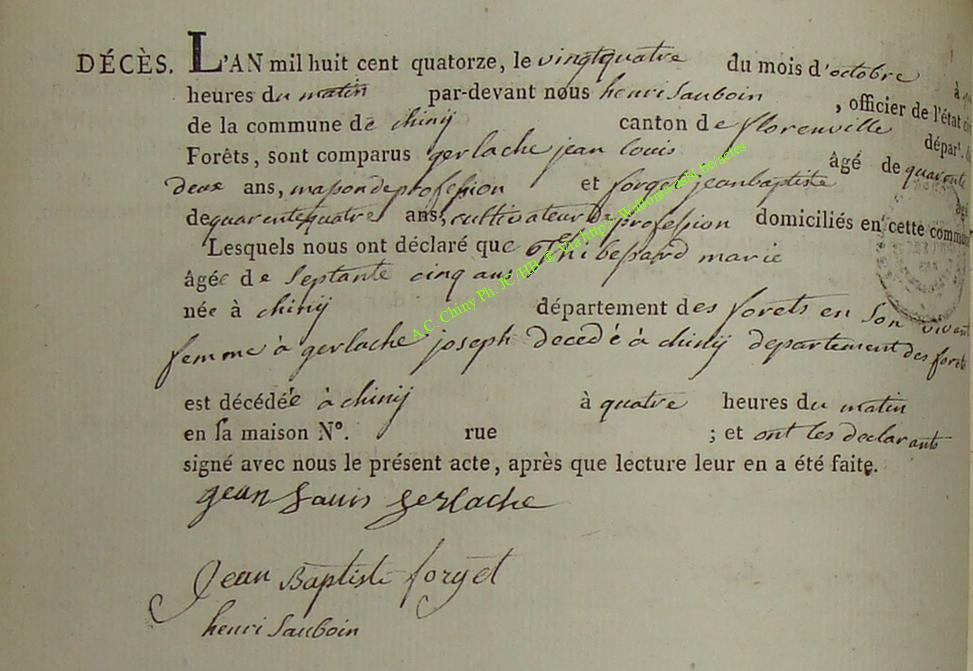 DÉCÈS. L'AN mil huit cent quatorze, le vingtquatre du mois d'octobre à
heures du matin par-devant nous henri Sauboin , officier de l'état
de la commune de chinÿ canton de florenville départ.
Forêts, sont comparus gerlache jean louis âgé de quarante
deux ans, masson de profession et forget jeanbaptiste
de quarentequatre ans, cultivateur de profession domiciliés en cette
Lesquels nous ont déclaré que bessard marie
âgée de septante cinq ans
née à chinÿ département des forets en son vivant
femme à gerlache joseph decedé à chinÿ departement des forets
est décédée à chinÿ à quatre heures du matin
en sa maison N°. rue ; et ont les declarants
signé avec nous le présent acte, après que lecture leur en a été faite.
jean Louis gerlache
Jean Baptiste forget
henri Sauboin
A.C. Chiny Ph. JC HB © Via http://